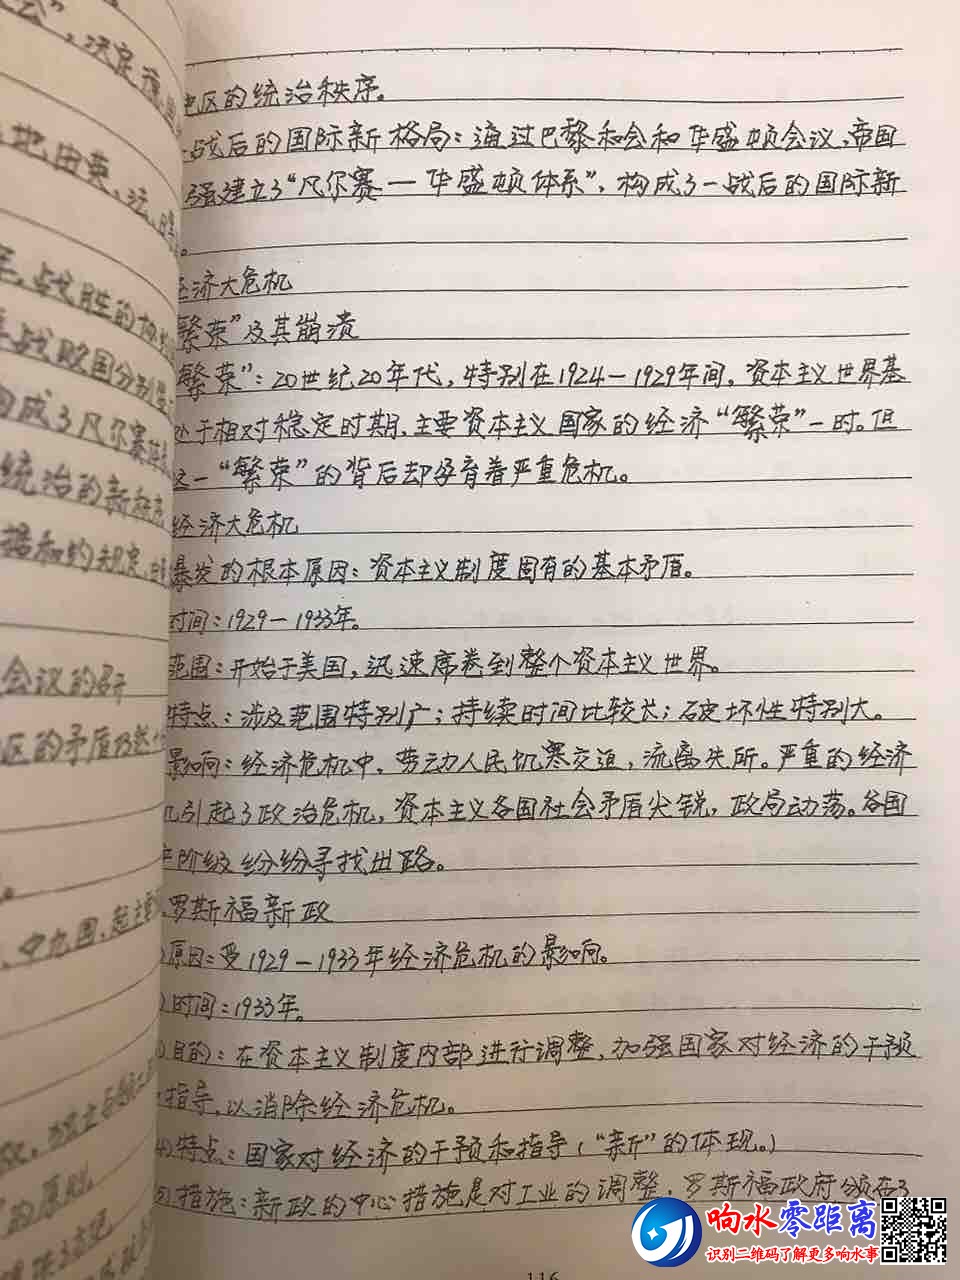 地区的统治秩序。
战后的国际新格局：通过巴黎和会和华盛顿会议，帝国
强建立了“凡尔赛—华盛顿体系”，构成了一战后的国际新
经济大危机
繁荣”及其崩溃
繁荣”：20世纪20年代，特别在1924—1929年间，资本主义世界基
处于相对稳定时期，主要资本主义国家的经济“繁荣”一时。但
这一“繁荣”的背后却孕育着严重危机。
经济大危机
暴发的根本原因：资本主义制度固有的基本矛盾。
时间：1929—1933年。
范围：开始于美国，迅速席卷到整个资本主义世界。
特点：涉及范围特别广；持续时间比较长；破坏性特别大。
影响：经济危机中，劳动人民饥寒交迫，流离失所。严重的经济
机引起了政治危机，资本主义各国社会矛盾尖锐，政局动荡。各国
阶级纷纷寻找出路。
罗斯福新政
原因：受1929—1933年经济危机的影响。
时间：1933年。
目的：在资本主义制度内部进行调整，加强国家对经济的干预
指导，以消除经济危机。
(4)特点：国家对经济的干预和指导（“新”的体现。）
措施：新政的中心措施是对工业的调整，罗斯福政府颁布了
116
响水零距离
识别二维码了解更多响水事
会”，决定德
地，由英、法、
战胜的协约
战败国分别签
构成了凡尔赛体系
统治的新秩序
据和约规定，
会议的召开
区的矛盾
中九国，起主要
的原则